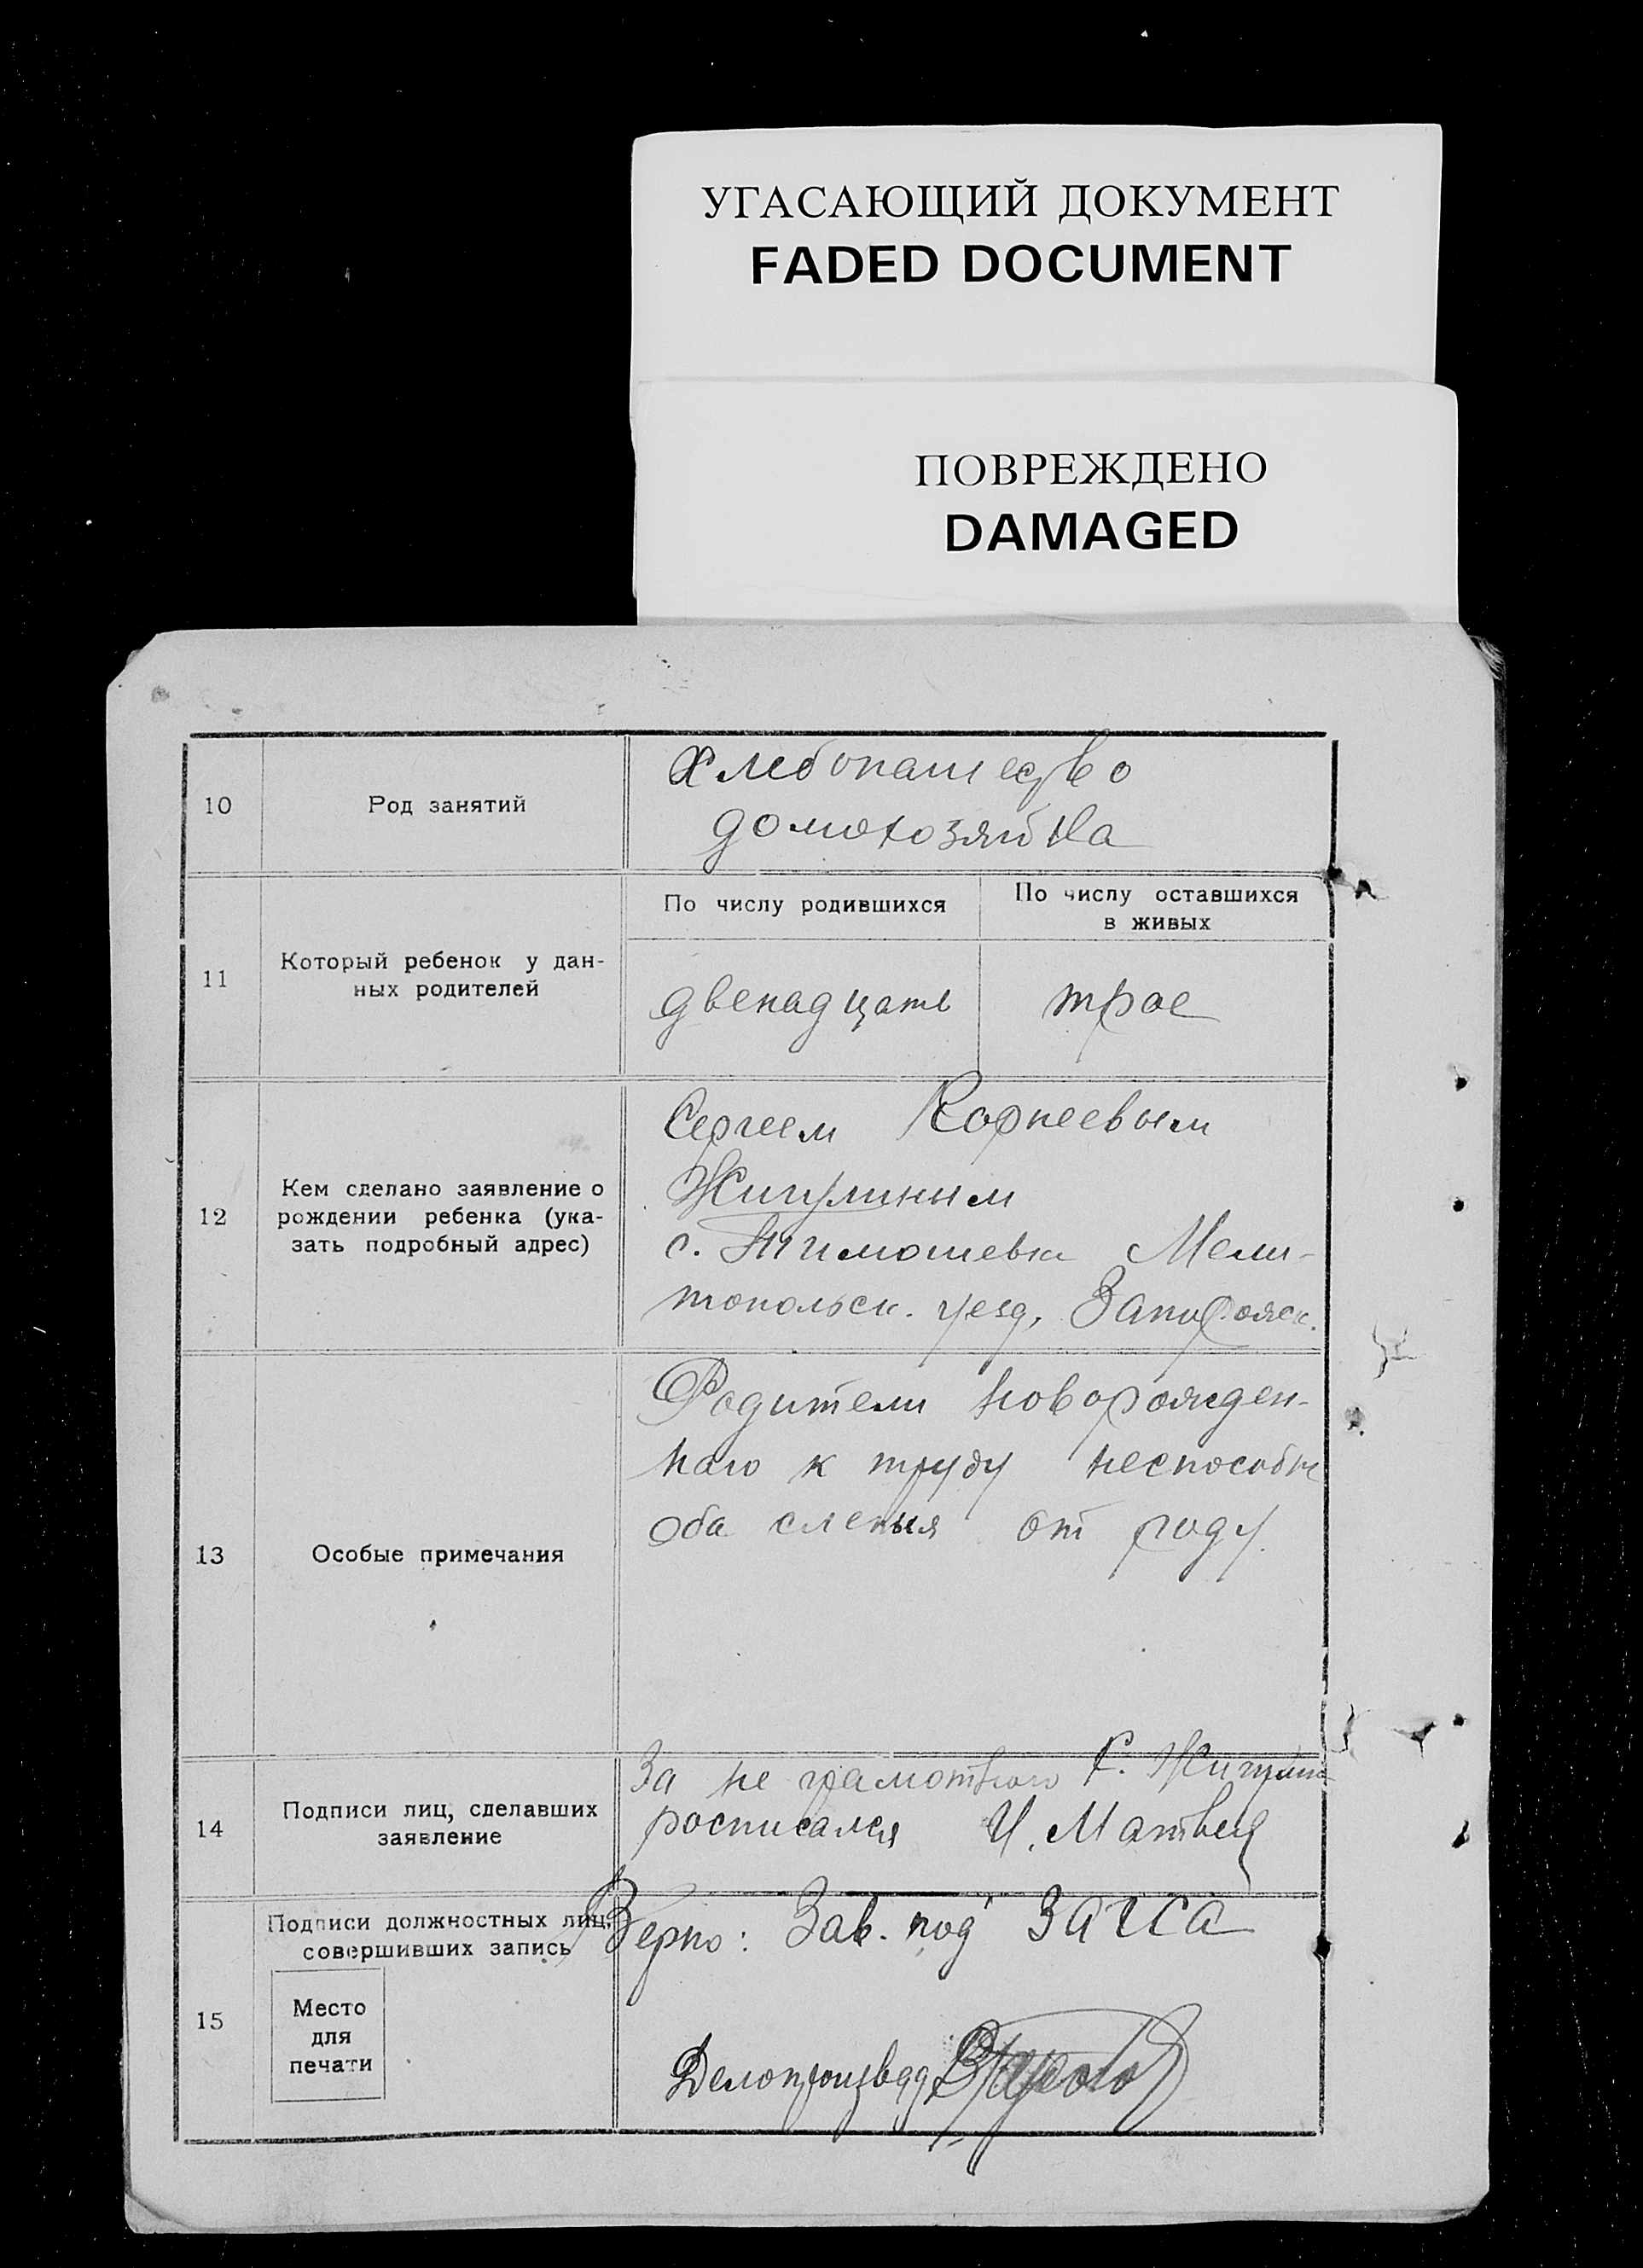 УГАСАЮЩИЙ ДОКУМЕНТ
FADED DOCUMENT
ПОВРЕЖДЕНО
DAMAGED
10
Род занятий
Хлебопашество
домохозяйка
11
Который ребенок у дан-
ных родителей
По числу родившихся
двенадцать
По числу оставшихся
в живых
трое
12
Кем сделано заявление о
рождении ребенка (ука-
зать подробный адрес)
Сергеем Корнеевым
Жигулиным
с. Тимошевка Мели-
топольск. уезд,
13
Особые примечания
Родители новорожден-
наго к труду неспособны
оба слепыя от роду.
14
Подписи лиц, сделавших
заявление
За не грамотного С. Жигулин
росписался И.
15
Подписи должностных лиц,
совершивших запись
Место
для
печати
Верно: Зав. под ЗАГСА